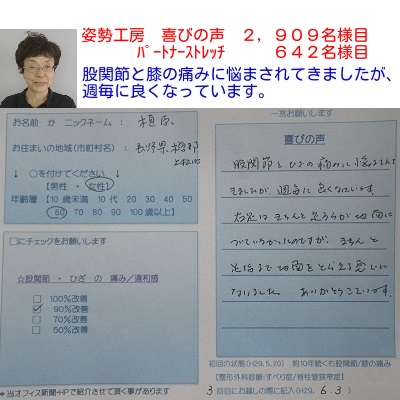 姿勢工房 喜びの声 2,909名様目
ﾊﾟｰﾄﾅｰｽﾄﾚｯﾁ 642名様目
股関節と膝の痛みに悩まされてきましたが、
週毎に良くなっています。
お名前 か ニックネーム：
お住まいの地域(市町村名)：
↓ ○を付けてください ↓
【男性 ・ 女性】
年齢層【10 歳未満 10 代 20 30 40 50
60 70 80 90 100歳以上】
□にチェックをお願いします
☆股関節 ・ ひざ の 痛み/違和感
□ 100%改善
☑ 90%改善
□ 70%改善
□ 50%改善
＊当オフィス新聞+HPで紹介させて頂く事があります
一言お願いします
喜びの声
股関節とひざの痛みに悩まされて
きましたが、週毎に良くなっています。
右足はきちんと足うらが地面に
ついていなかったのですが、きちんと
足指まで地面をとらえる感じに
なりました。ありがとうございます。
初回の状態(H29.5.20) 約10年続く右股関節/膝の痛み
【整形外科診断:すべり症/脊柱管狭窄症】
3回目にお越しの際に記入(H29. 6.3)